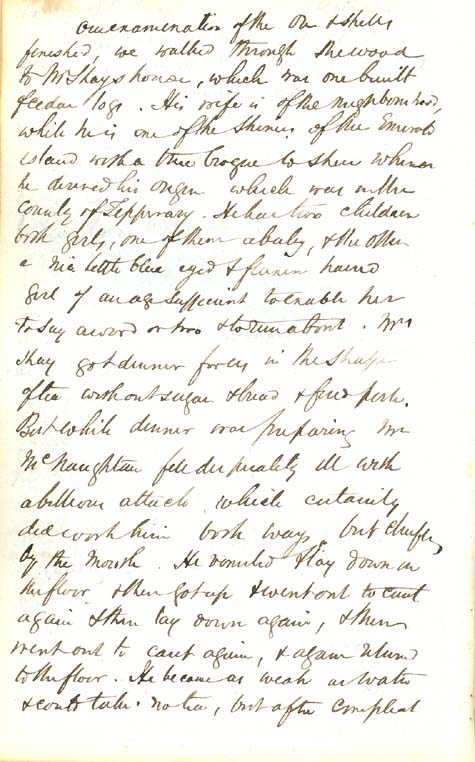 our examination of the Ore & shells
finished, we walked through the wood
to Mr Shays house, which was one built
of cedar logs. His wife is of the neighbourhood,
while he is one of the Shiners of the Emerald
island with a true brogue to shew whence
he derived his origin which was in the
County of Tipperary. He has two children
both girls, one of them a baby, & the other
a nice little blue eyed & flaxen haired
girl of an age sufficient to enable her
to say a word or two & to run about. Mrs
Shay got dinner for us in the shape
of tea without sugar & bread & fried pork.
But while dinner was preparing Mr
McNaughtan fell desperately ill with
a billious attack which certainly
did work him both ways, but chiefly
by the mouth. He vomited & lay down on
the floor & then got up & went out to cast
again & then lay down again, & then
went out to cast again, & again returned
to the floor. He became as weak as water
& could take no tea, but after compleat